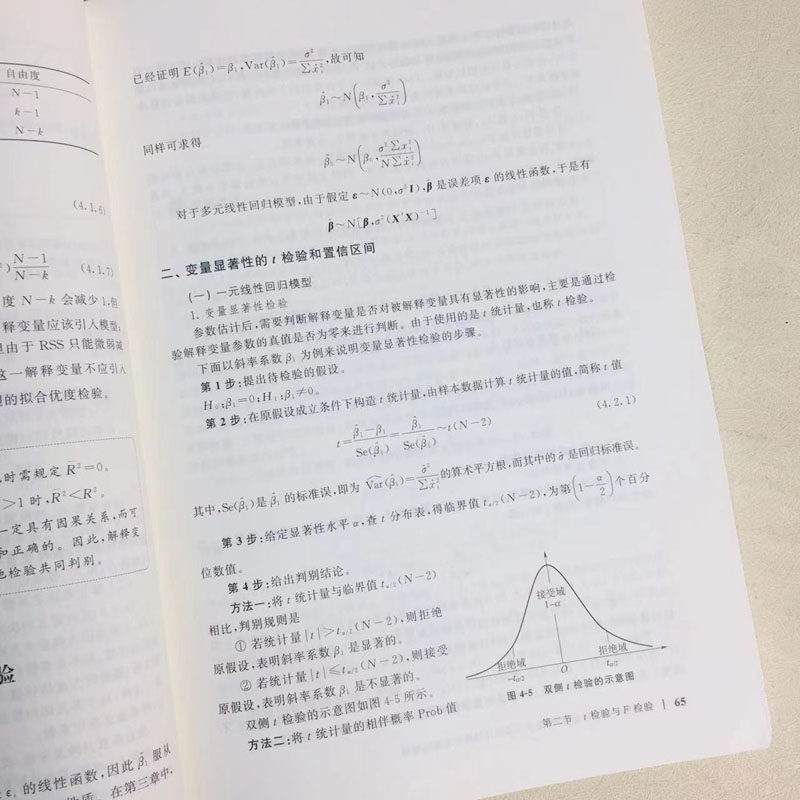 自由度
N−1
k−1
N−k
(4.1.6)
N−1
N−k
(4.1.7)
度 N−k 会减少 1,但
释变量应该引入模型;
但由于 RSS 只能微弱减
这一解释变量不应引入
的拟合优度检验。
时需规定 R̄²=0。
>1 时,R̄²<R²。
一定具有因果关系,而可
和正确的。因此,解释变
检验共同判别。
验
的线性函数,因此 β̂₁ 服从
在第三章中,
已经证明 E(β̂₁)=β₁,Var(β̂₁)=σ²/∑ẋᵢ²,故可知
β̂₁~N(β₁,σ²/∑ẋᵢ²)
同样可求得
β̂₀~N(β₀,σ²∑xᵢ²/N∑ẋᵢ²)
对于多元线性回归模型,由于假定 ε~N(0,σ²I),β̂ 是误差项 ε 的线性函数,于是有
β̂~N[β,σ²(X′X)⁻¹]
二、变量显著性的 t 检验和置信区间
(一) 一元线性回归模型
1. 变量显著性检验
参数估计后,需要判断解释变量是否对被解释变量具有显著性的影响,主要是通过检
验解释变量参数的真值是否为零来进行判断。由于使用的是 t 统计量,也称 t 检验。
下面以斜率系数 β₁ 为例来说明变量显著性检验的步骤。
第 1 步:提出待检验的假设。
H₀:β₁=0;H₁:β₁≠0。
第 2 步:在原假设成立条件下构造 t 统计量,由样本数据计算 t 统计量的值,简称 t 值
t=(β̂₁−β₁)/Se(β̂₁)=β̂₁/Se(β̂₁)~t(N−2) (4.2.1)
其中,Se(β̂₁)是 β̂₁ 的标准误,即为 V̂ar(β̂₁)=σ̂²/∑ẋᵢ²的算术平方根,而其中的 σ̂ 是回归标准误。
第 3 步:给定显著性水平 α,查 t 分布表,得临界值 t_{α/2}(N−2),为第(1−α/2)个百分
位数值。
第 4 步:给出判别结论。
方法一:将 t 统计量与临界值 t_{α/2}(N−2)
相比,判别规则是
① 若统计量|t|>t_{α/2}(N−2),则拒绝
原假设,表明斜率系数 β₁ 是显著的。
② 若统计量|t|⩽t_{α/2}(N−2),则接受
原假设,表明斜率系数 β₁ 是不显著的。
双侧 t 检验的示意图如图 4-5 所示。
方法二:将 t 统计量的相伴概率 Prob 值
接受域
1−α
拒绝域
−t_{α/2}
O
拒绝域
t_{α/2}
图 4-5 双侧 t 检验的示意图
第二节 t 检验与 F 检验 | 65